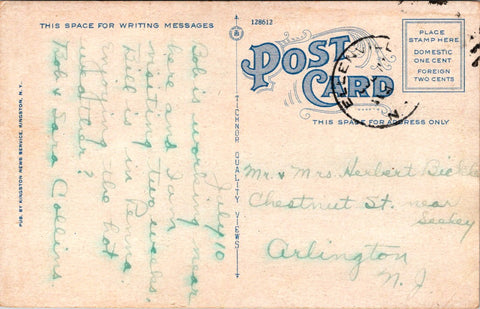 THIS SPACE FOR WRITING MESSAGES
128612
POST CARD
PLACE
STAMP HERE
DOMESTIC
ONE CENT
FOREIGN
TWO CENTS
THIS SPACE FOR ADDRESS ONLY
PUB. BY KINGSTON NEWS SERVICE, KINGSTON, N.Y.
TICHNOR QUALITY VIEWS
July 10
Bob is working near
here and I am
visiting two weeks.
Bill is in Penna.
enjoying the hot
weather?
Bob & Sara Collins
Mr. & Mrs. Herbert
Chestnut St. near
Arlington
N. J.